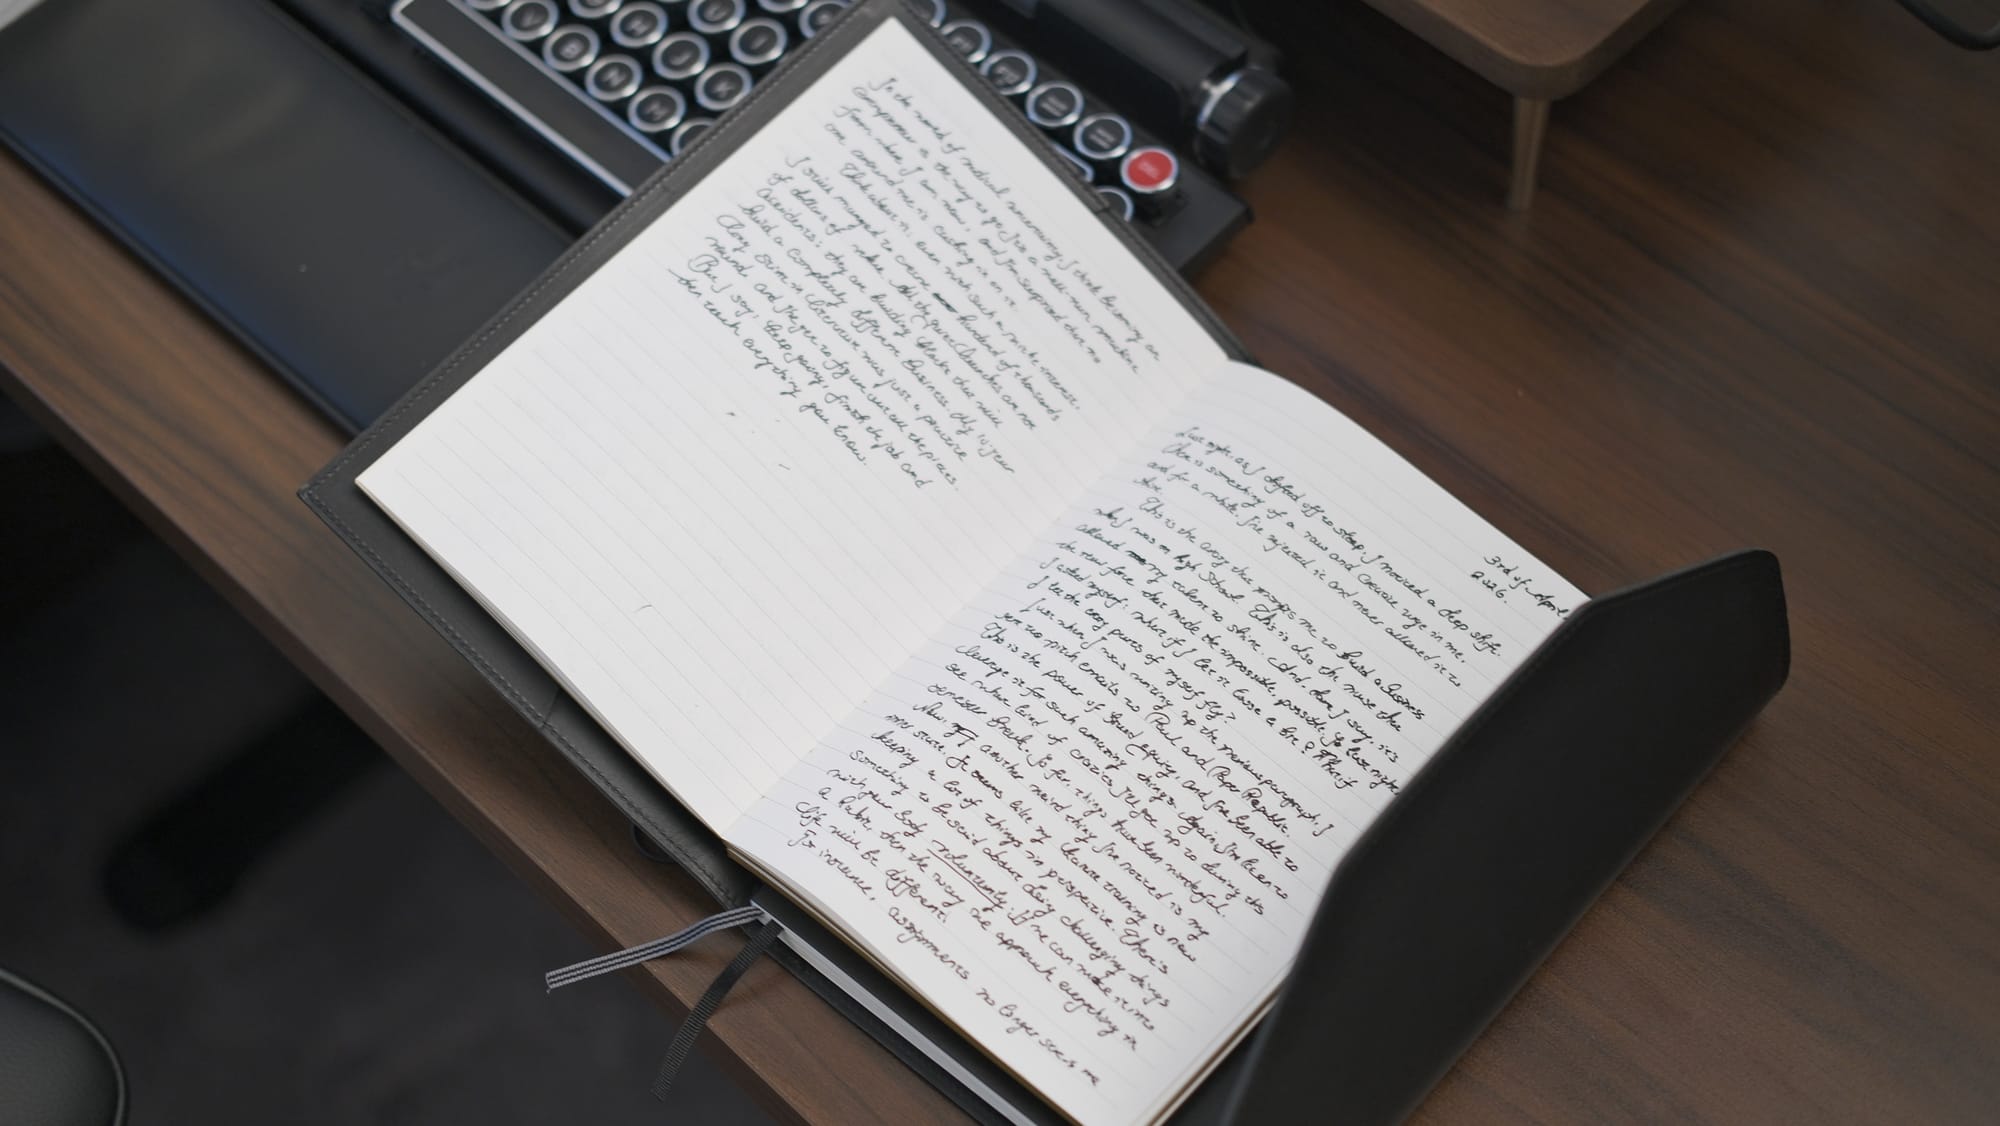 In the world of medical uncertainty, I think becoming an
entrepreneur is the way to go. It's a well-worn narrative
from where I am now, and I'm surprised that no
one around me is cashing in on it.
Think about it: even with such a niche interest,
I still managed to create hundred of thousands
of dollars of value. All the quiet launches are not
accidents: they are building blocks that will
build a completely different business. My 10-year
long stint in literature was just a practice
round and it's year to figure out all the pieces.
But I say: keep going, finish the job and
then teach everything you know.
3rd of April
2026.
Last night, as I dozed off to sleep, I noticed a deep shift.
There is something of a raw and creative urge in me,
and for a while, I've rejected it and never allowed it to
shine.
This is the urge that prompts me to build a business
when I was in high school. This is also the muse that
allowed my talent to shine. And, dare I say, it's
the raw force that made the impossible, possible. So last night,
I asked myself: what if I let it loose a bit? What if
I let the very parts of myself fly?
Just when I was writing up the previous paragraph, I
sent two pitch emails to Paul and Paper Republic.
This is the power of brand equity, and I've been able to
leverage it for such amazing things. Again, I'm keen to
see what kind of crazies I'll get up to during this
semester break. So far, things have been wonderful.
Now, another weird thing I've noticed is my
inner state. It seems like my climate training is now
keeping a lot of things in perspective. There's
something to be said about doing challenging things
with your body voluntarily. If we can make it into
a habit, then the way we approach everything in
life will be different.
For instance, assignments no longer scares me